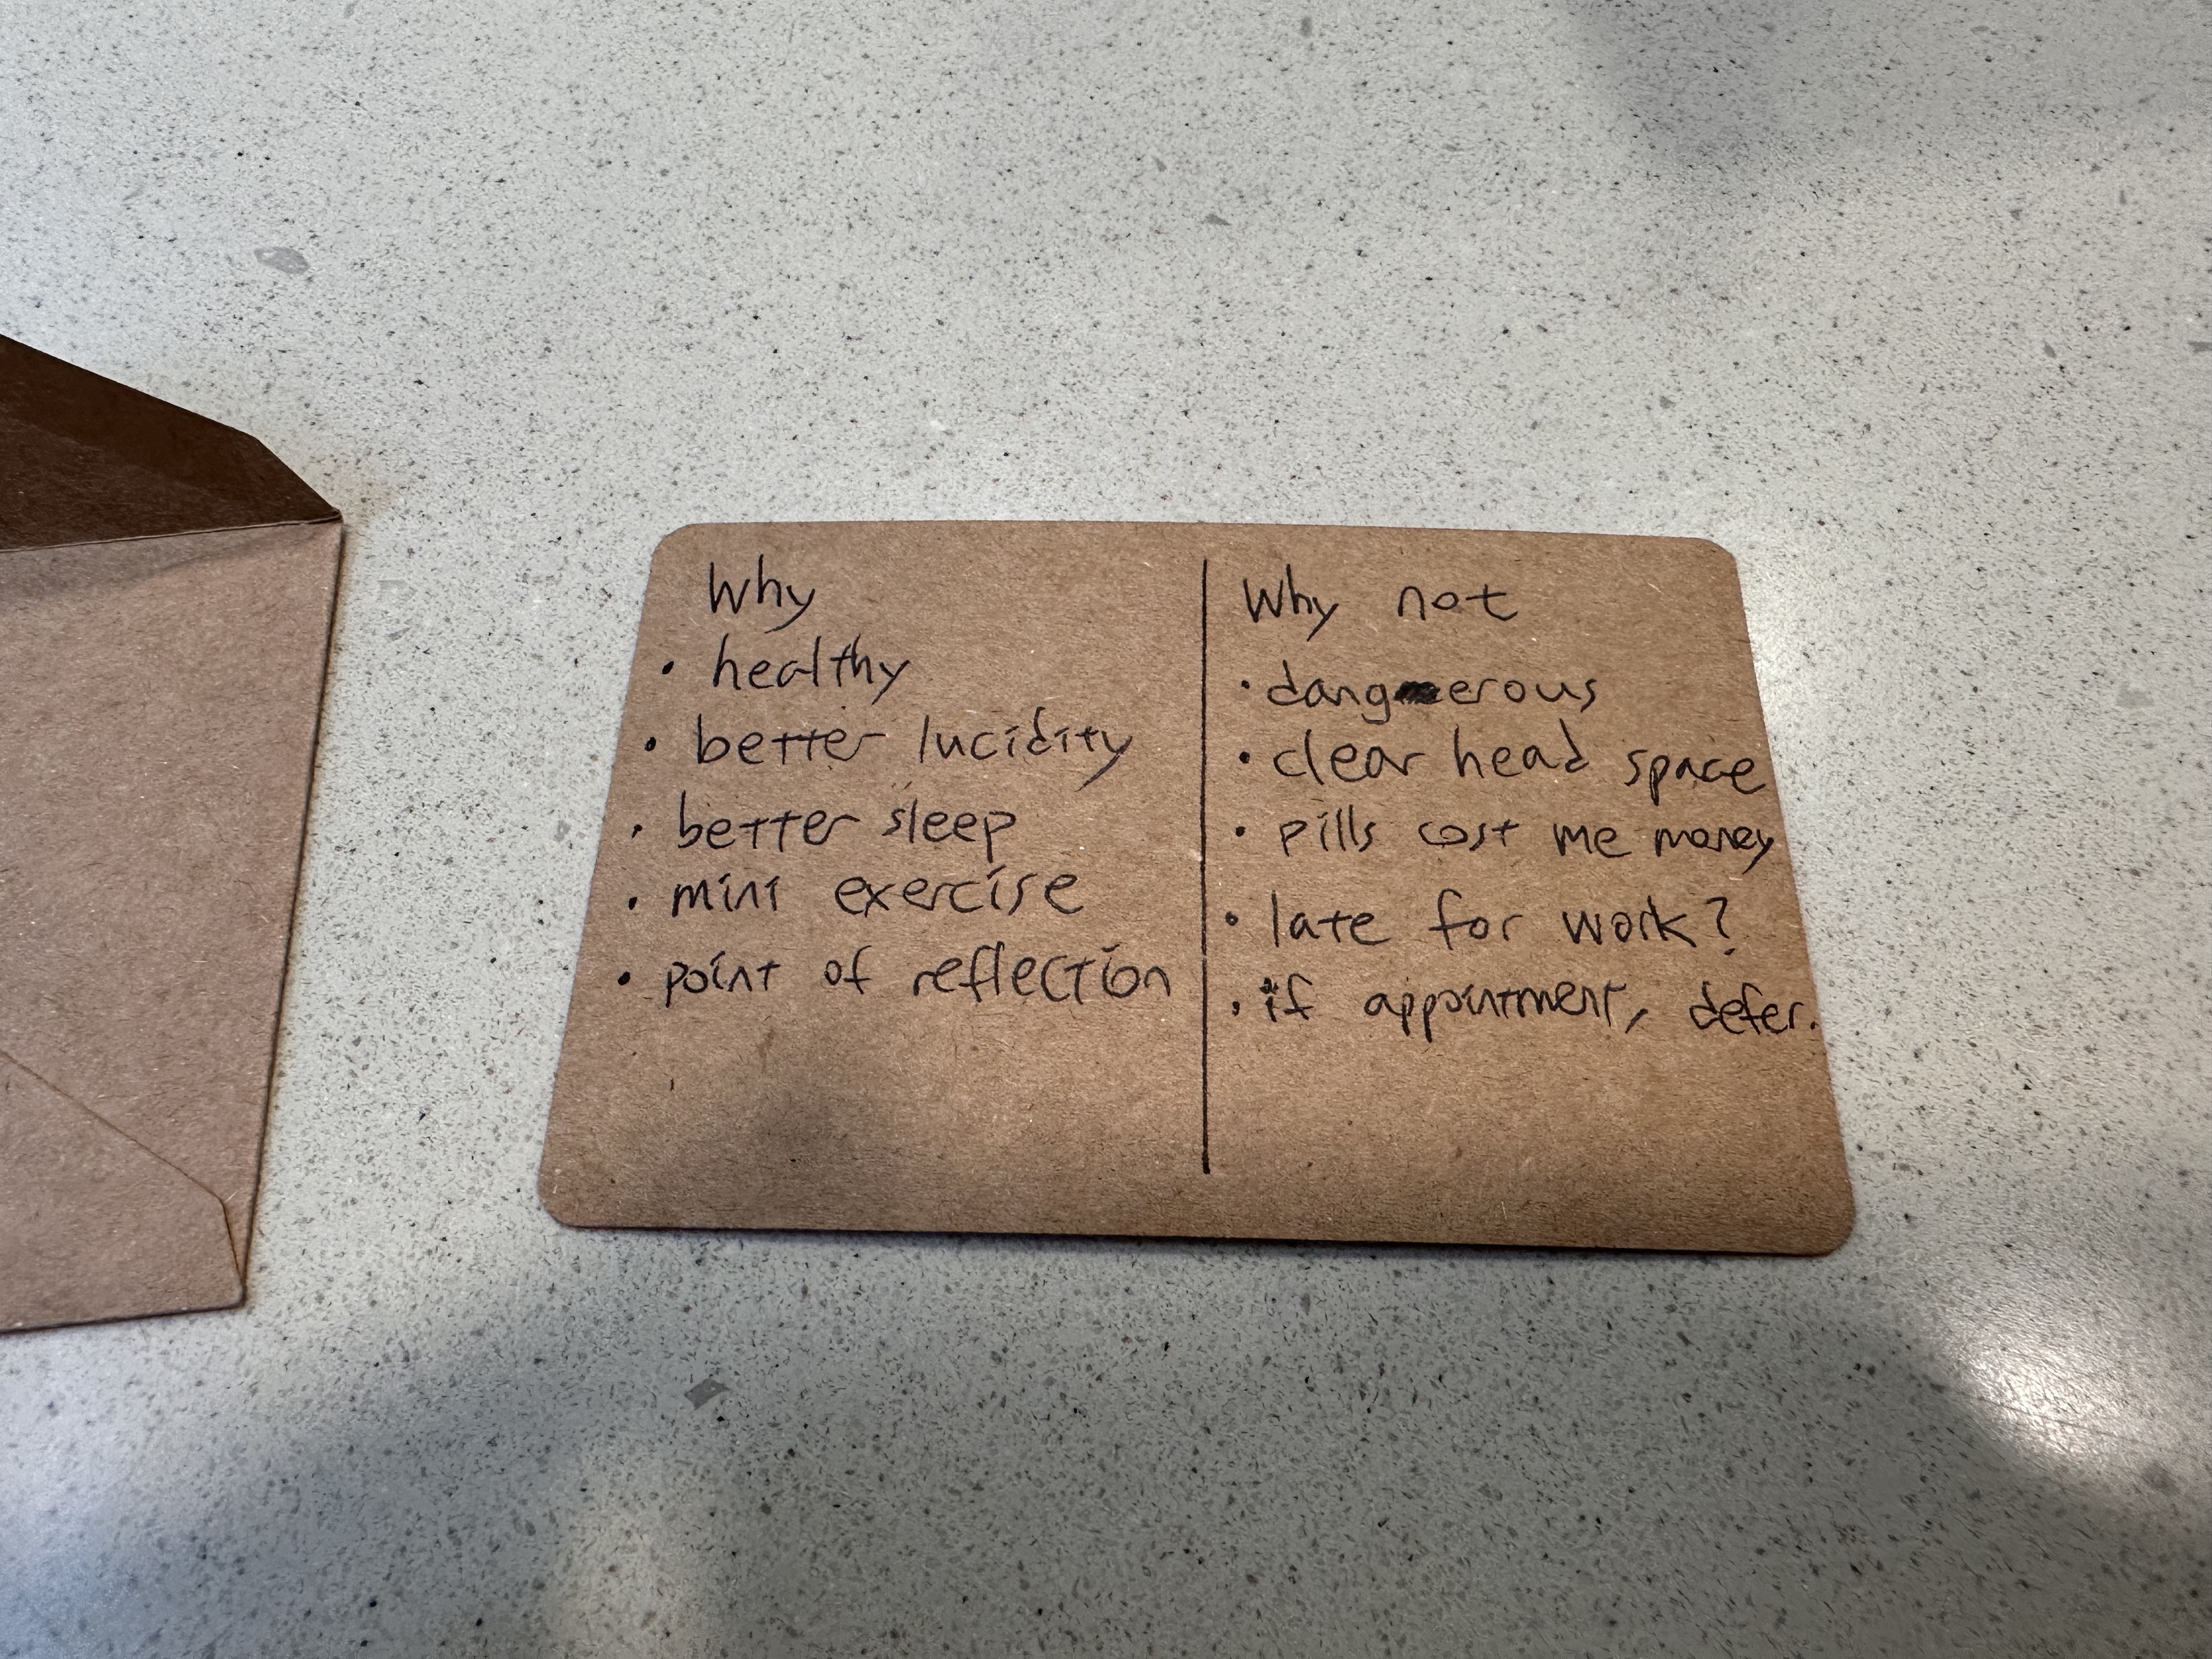 Why
• healthy
• better lucidity
• better sleep
• mini exercise
• point of reflection
Why not
• dangerous
• clear head space
• pills cost me money
• late for work?
• if appointment, defer.